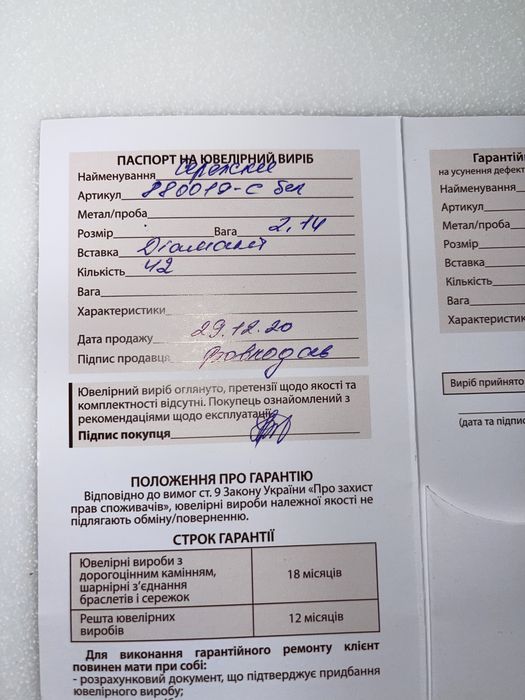 ПАСПОРТ НА ЮВЕЛІРНИЙ ВИРІБ
Найменування Сережки
Артикул 880019-С бел
Метал/проба
Розмір Вага 2,14
Вставка Діамант
Кількість 42
Вага
Характеристики
Дата продажу 29.12.20
Підпис продавця
Ювелірний виріб оглянуто, претензії щодо якості та
комплектності відсутні. Покупець ознайомлений з
рекомендаціями щодо експлуатації.
Підпис покупця
ПОЛОЖЕННЯ ПРО ГАРАНТІЮ
Відповідно до вимог ст. 9 Закону України «Про захист
прав споживачів», ювелірні вироби належної якості не
підлягають обміну/поверненню.
СТРОК ГАРАНТІЇ
Ювелірні вироби з
дорогоцінним камінням,
шарнірні з’єднання
браслетів і сережок
18 місяців
Решта ювелірних
виробів
12 місяців
Для виконання гарантійного ремонту клієнт
повинен мати при собі:
- розрахунковий документ, що підтверджує придбання
ювелірного виробу;
Гарантій
на усунення дефект
Найменування
Артикул
Метал/проба
Розмір
Вставка
Кількість
Вага
Характеристик
Виріб прийнято
(дата та підпис